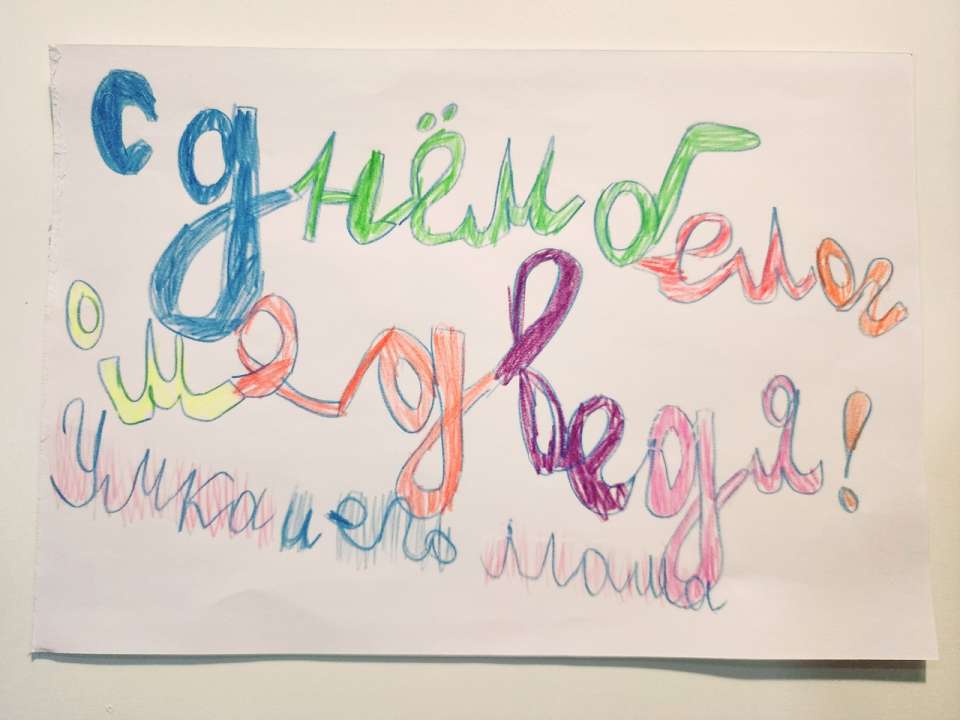 С днём белог
о медведя!
Умка и его мама